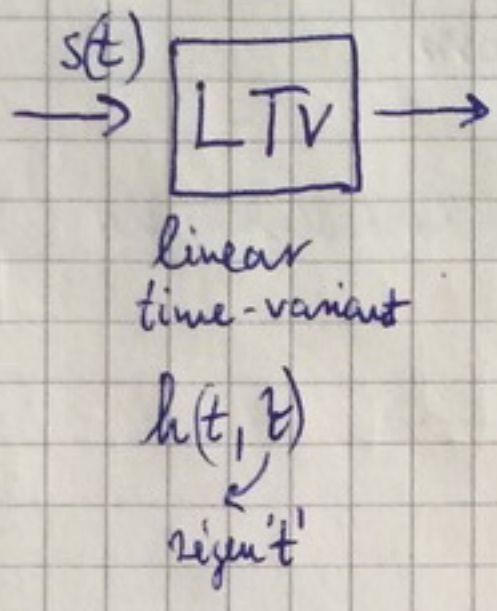 s(t)
LTV
linear
time-variant
h(t, t)
régen 't'